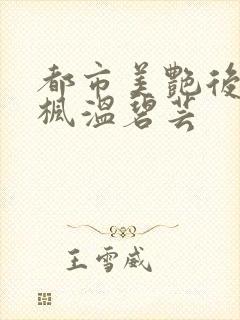 都市美艷後
楓溫碧芸
王雪威